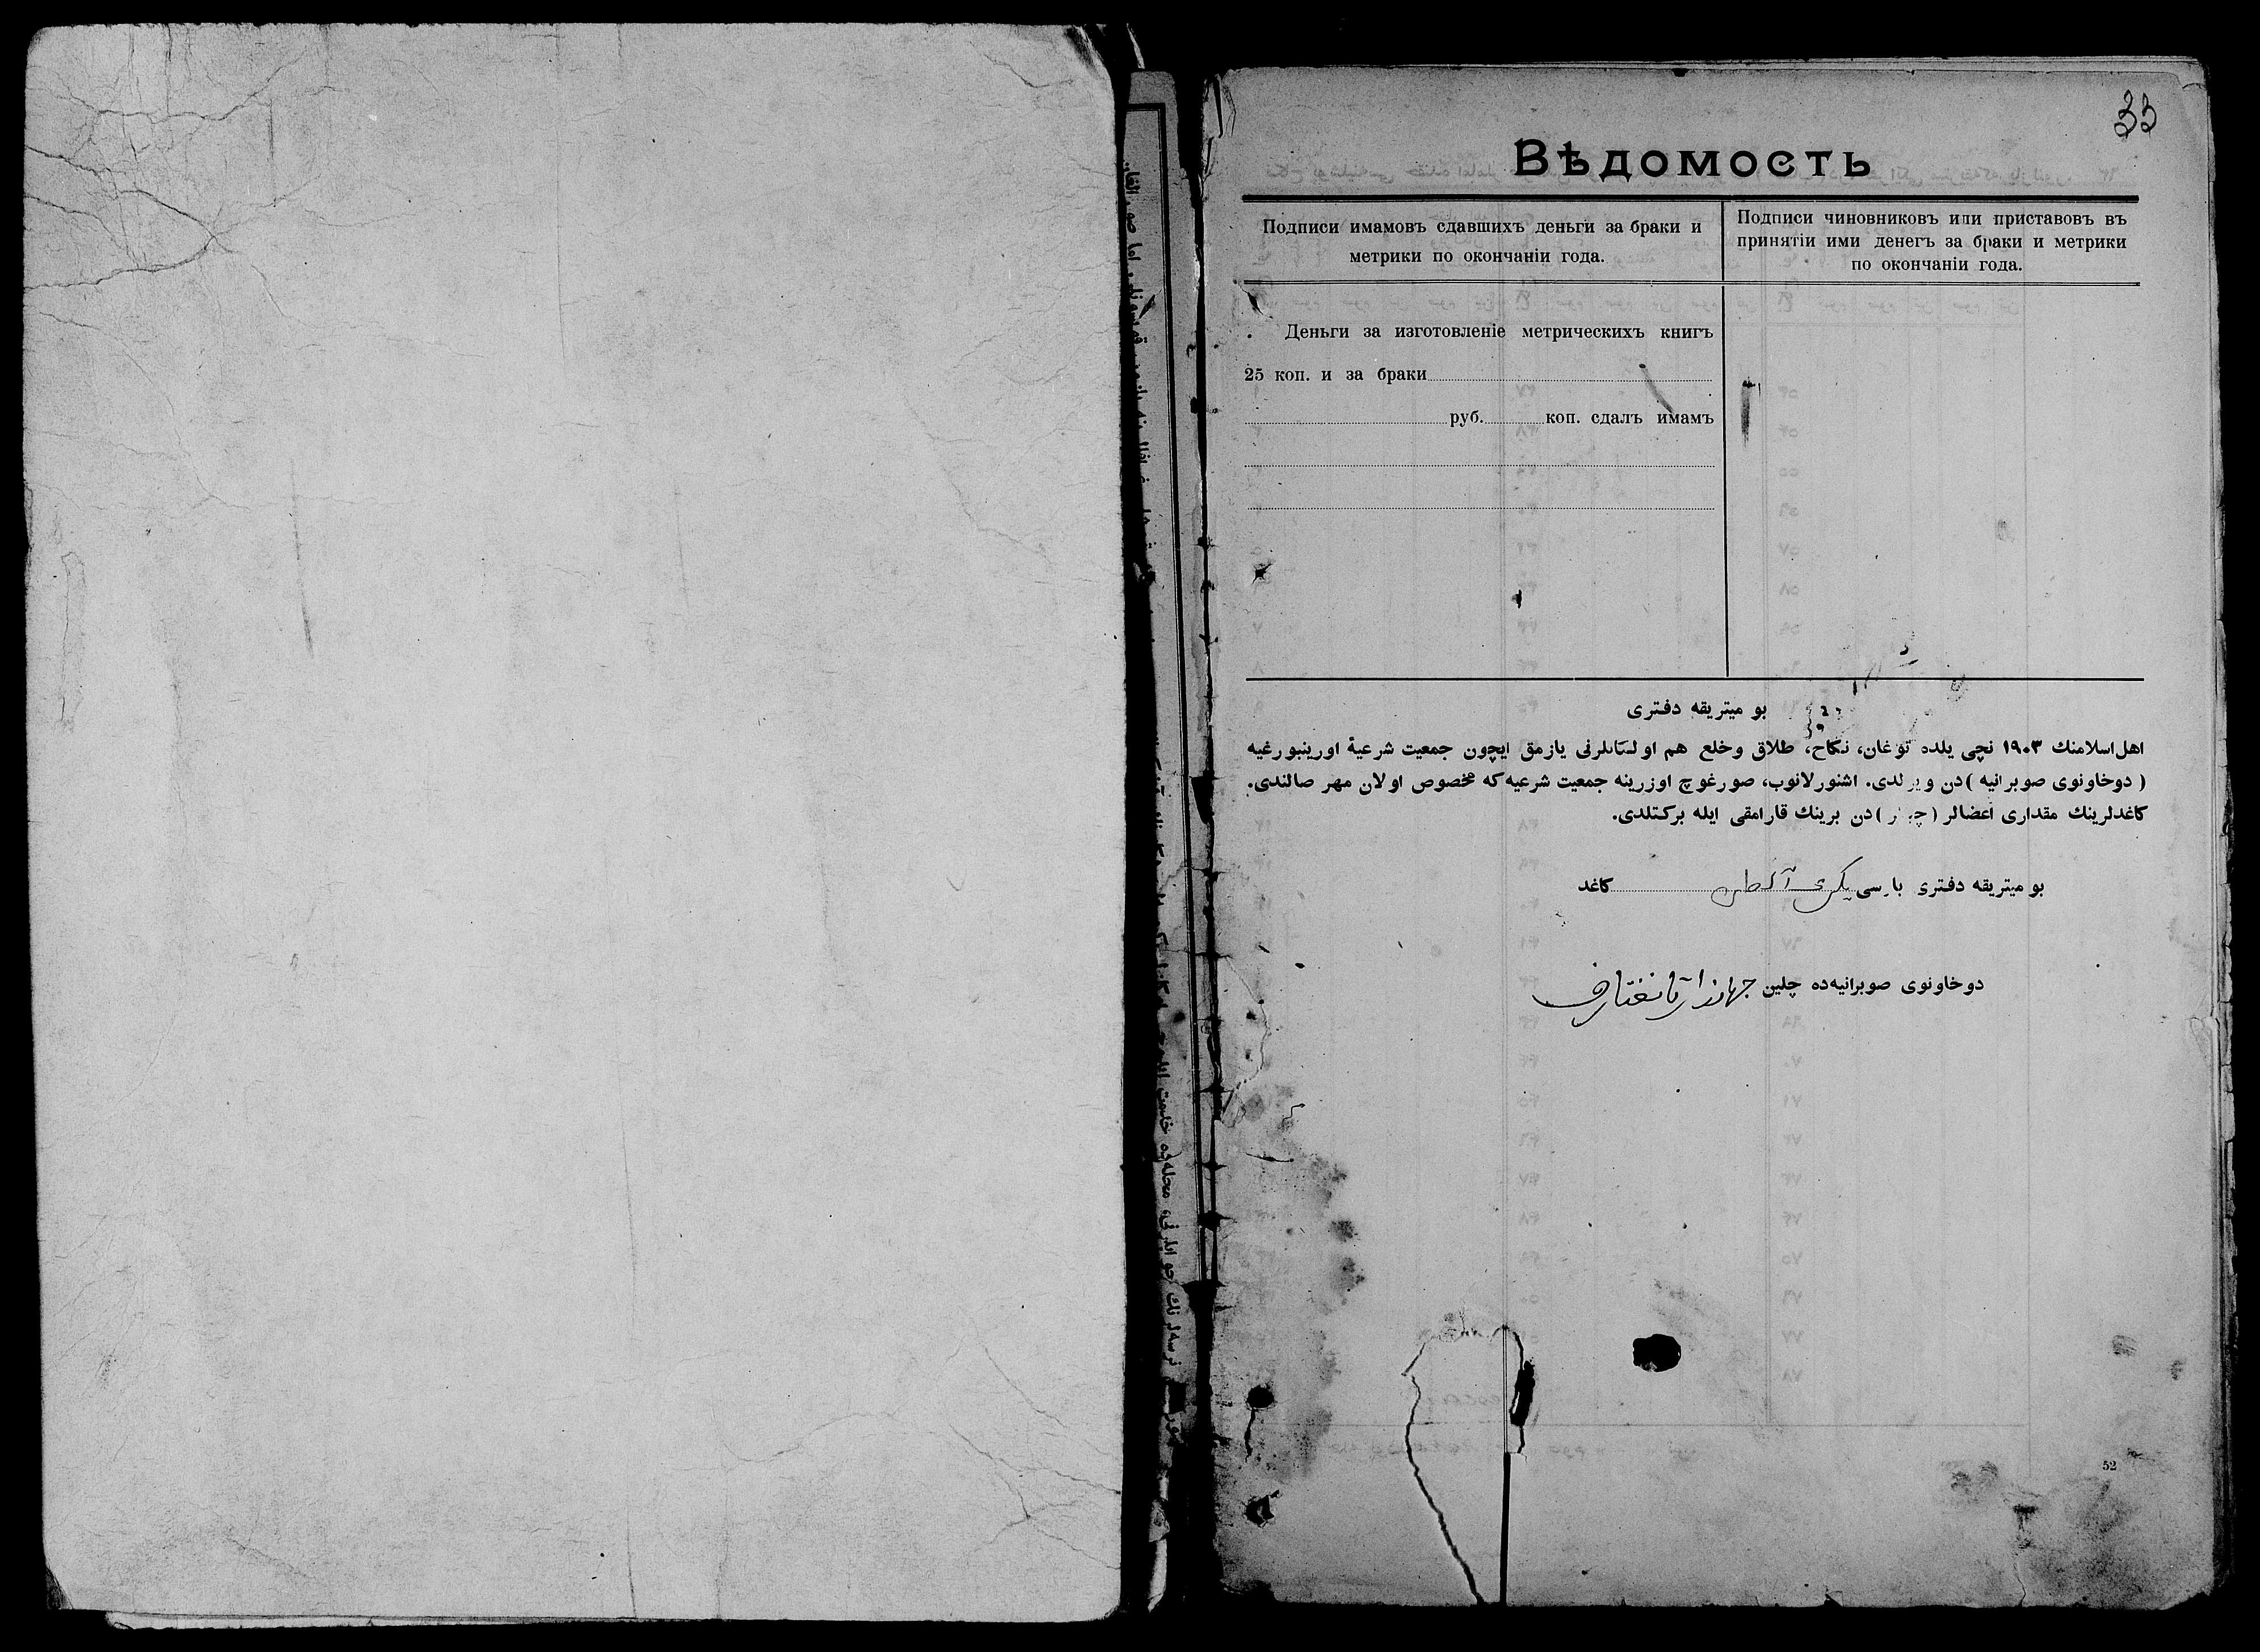 33
Вѣдомость
Подписи имамовъ сдавшихъ деньги за браки и
метрики по окончаніи года.
Подписи чиновниковъ или приставовъ въ
принятіи ими денегъ за браки и метрики
по окончаніи года.
Деньги за изготовленіе метрическихъ книгъ
25 коп. и за браки
руб. коп. сдалъ имамъ
بو ميتريقه دفترى
اهل اسلامنك ١٩٠٣ نچى يلده توغان، نكاح، طلاق وخلع هم اولگانلرنى يازمق ايچون جمعيت شرعيۀ اورينبورغيه
( دوخاونوى صوبرانيه ) دن ويرلدى. اشنورلانوب، صورغوچ اوزرينه جمعيت شرعيه‌كه مخصوص اولان مهر صالندى.
كاغدلرينك مقدارى اعضالر ( ) دن برينك قارامقى ايله بركتلدى.
بو ميتريقه دفترى بارسى يكرمى آلطى كاغد
دوخاونوى صوبرانيه‌ده چلين
52